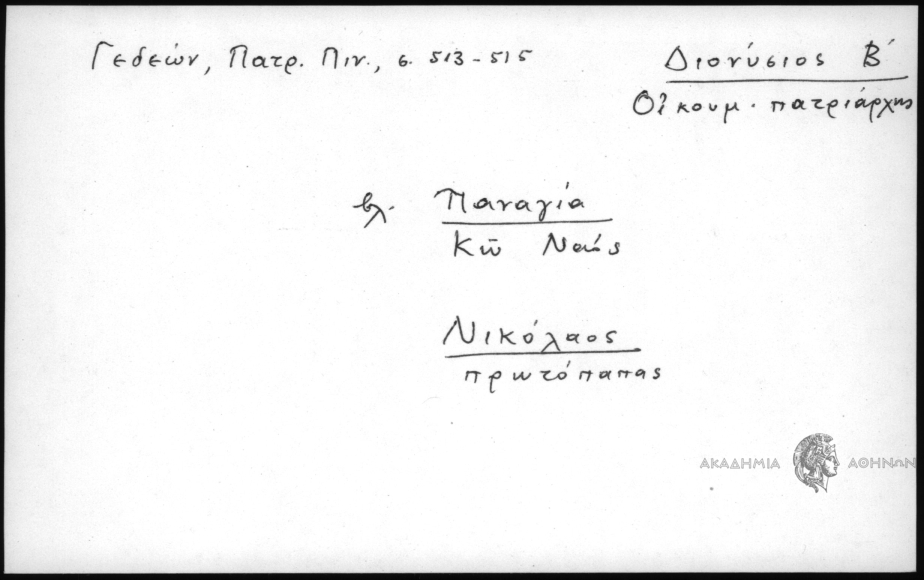 Γεδεών, Πατρ. Πιν., σ. 513-515
Διονύσιος Β΄
Οἰκουμ. πατριάρχης
βλ. Παναγία
Κῶ Ναός
Νικόλαος
πρωτόπαπας
ΑΚΑΔΗΜΙΑ ΑΘΗΝΩΝ